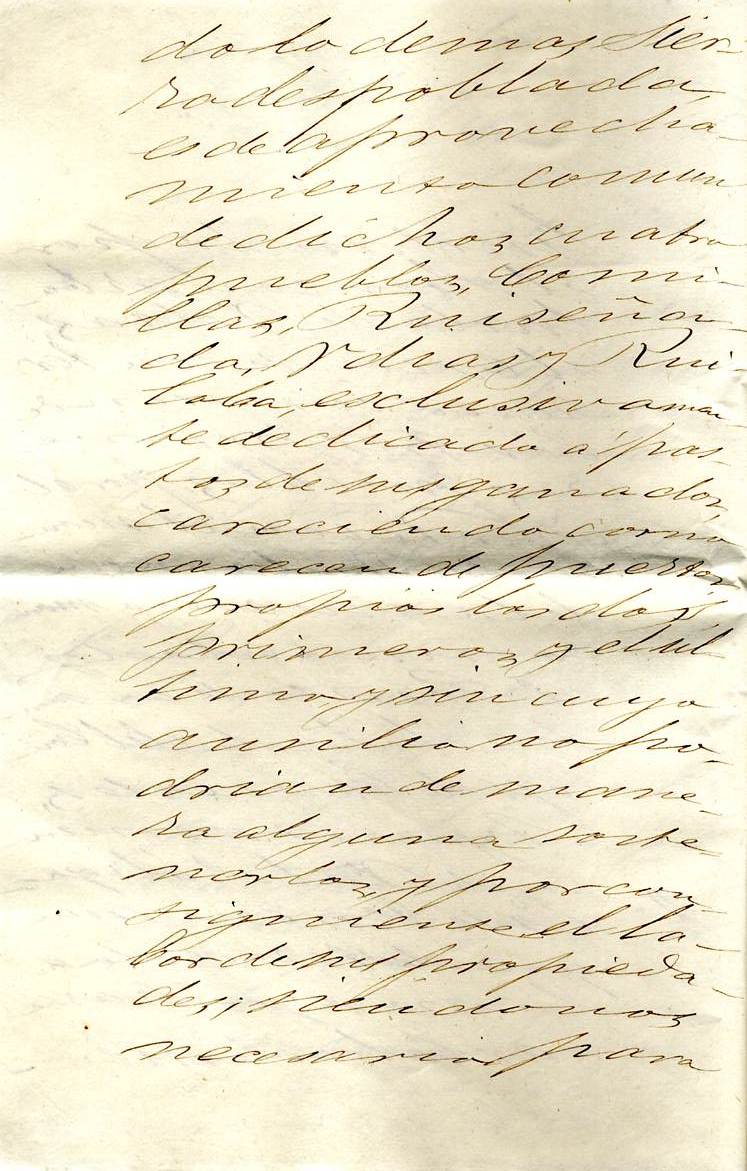 do lo demas Sier-
ra despoblada,
es de aprovecha-
miento comun
de dichos cuatro
pueblos, Comi-
llas, Ruiseña-
da, Ydias y Rui-
loba, esclusivamen-
te dedicado á pas-
tos de sus ganados,
careciendo como
carecen de puertos
propios los dos
primeros y el úl-
timo, y sin cuyo
aucilio no po-
drian de mane-
ra alguna soste-
nerlos, y por con-
siguiente el la-
bor de sus propieda-
des; siendonos
necesario para